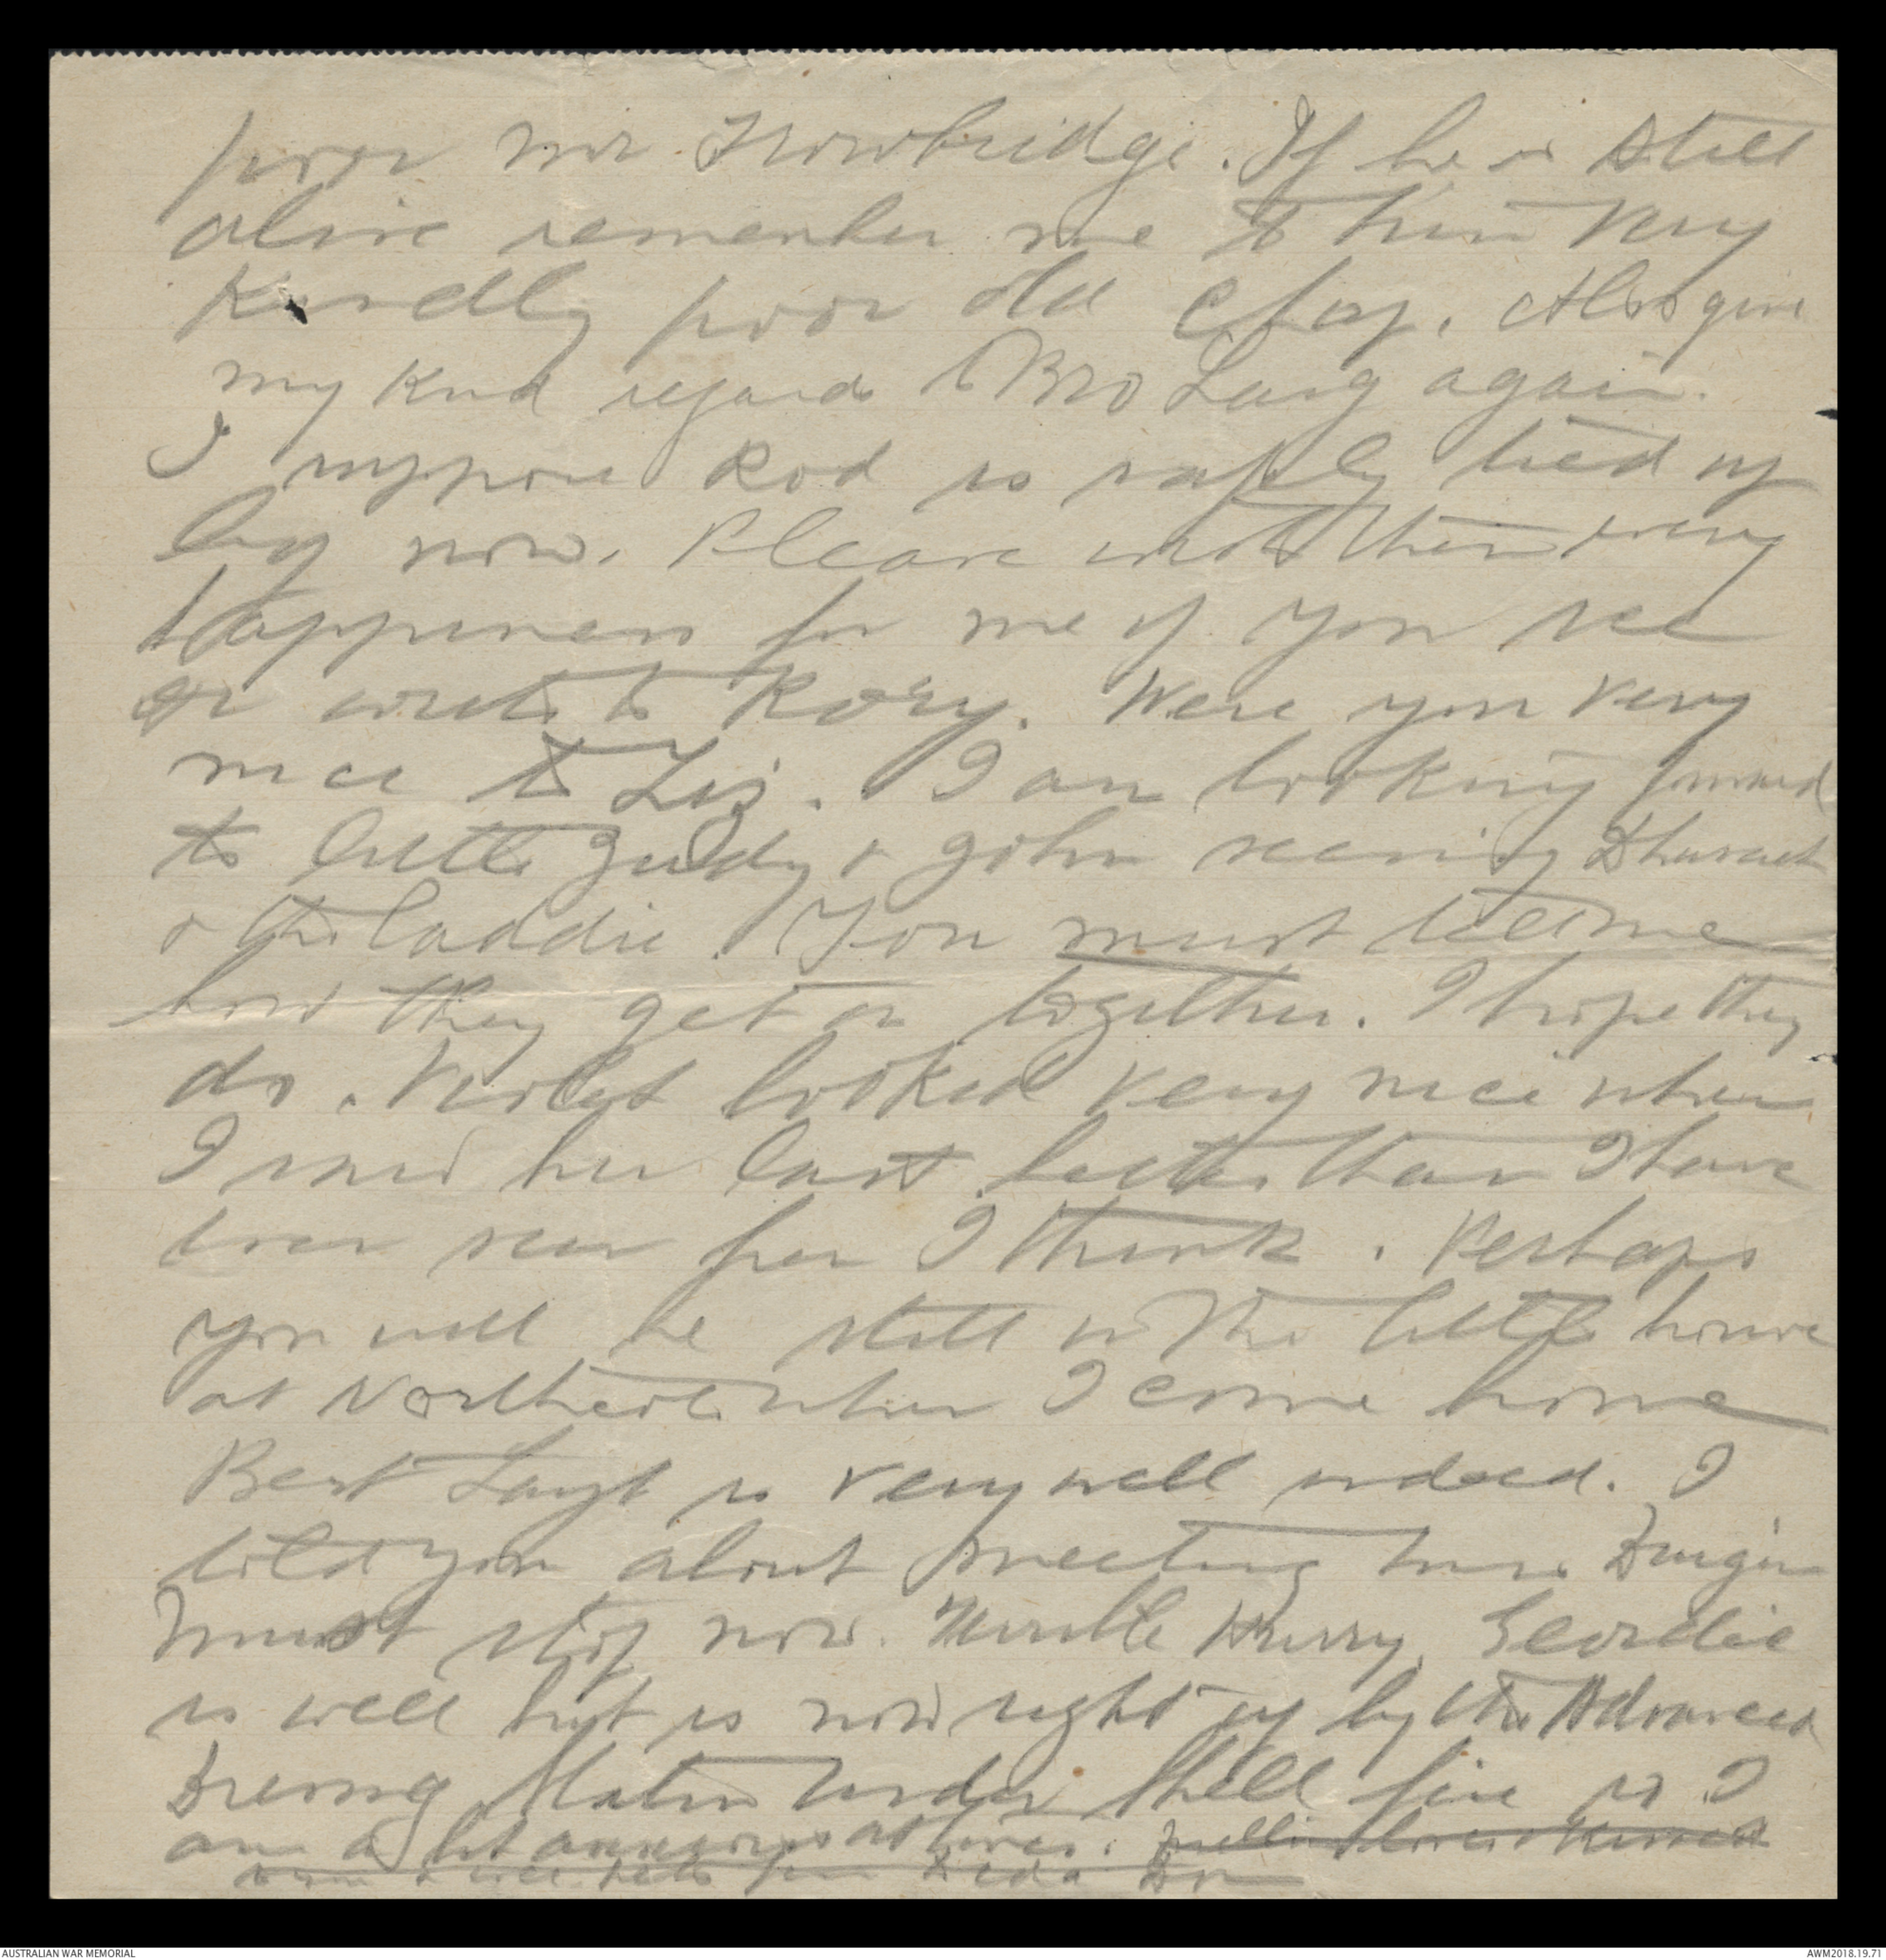 poor Mr Trowbridge. If he is still
alive remember me to him very
kindly poor old chap. Also give
my kind regards to Bro Lang again.
I suppose Rod is safely tied up
by now. Please wish them every
happiness for me if you see
or write to Rory. Were you very
nice to Liz. I am looking forward
to little Judy & John seeing
& the laddie. You must tell me
how they get on together. I hope they
do. Violet looked very nice when
I saw her last better than I have
ever seen her I think. Perhaps
you will be still in the little house
at Northcote when I come home
Bert Layt is very well indeed. I
told you about meeting him
must stop now. Humble Hurry. Geordie
is well but is now right up by the Advanced
Dressing Station under Shell fire so I
am a bit anxious at times. love & kisses
AUSTRALIAN WAR MEMORIAL
AWM2018.19.71